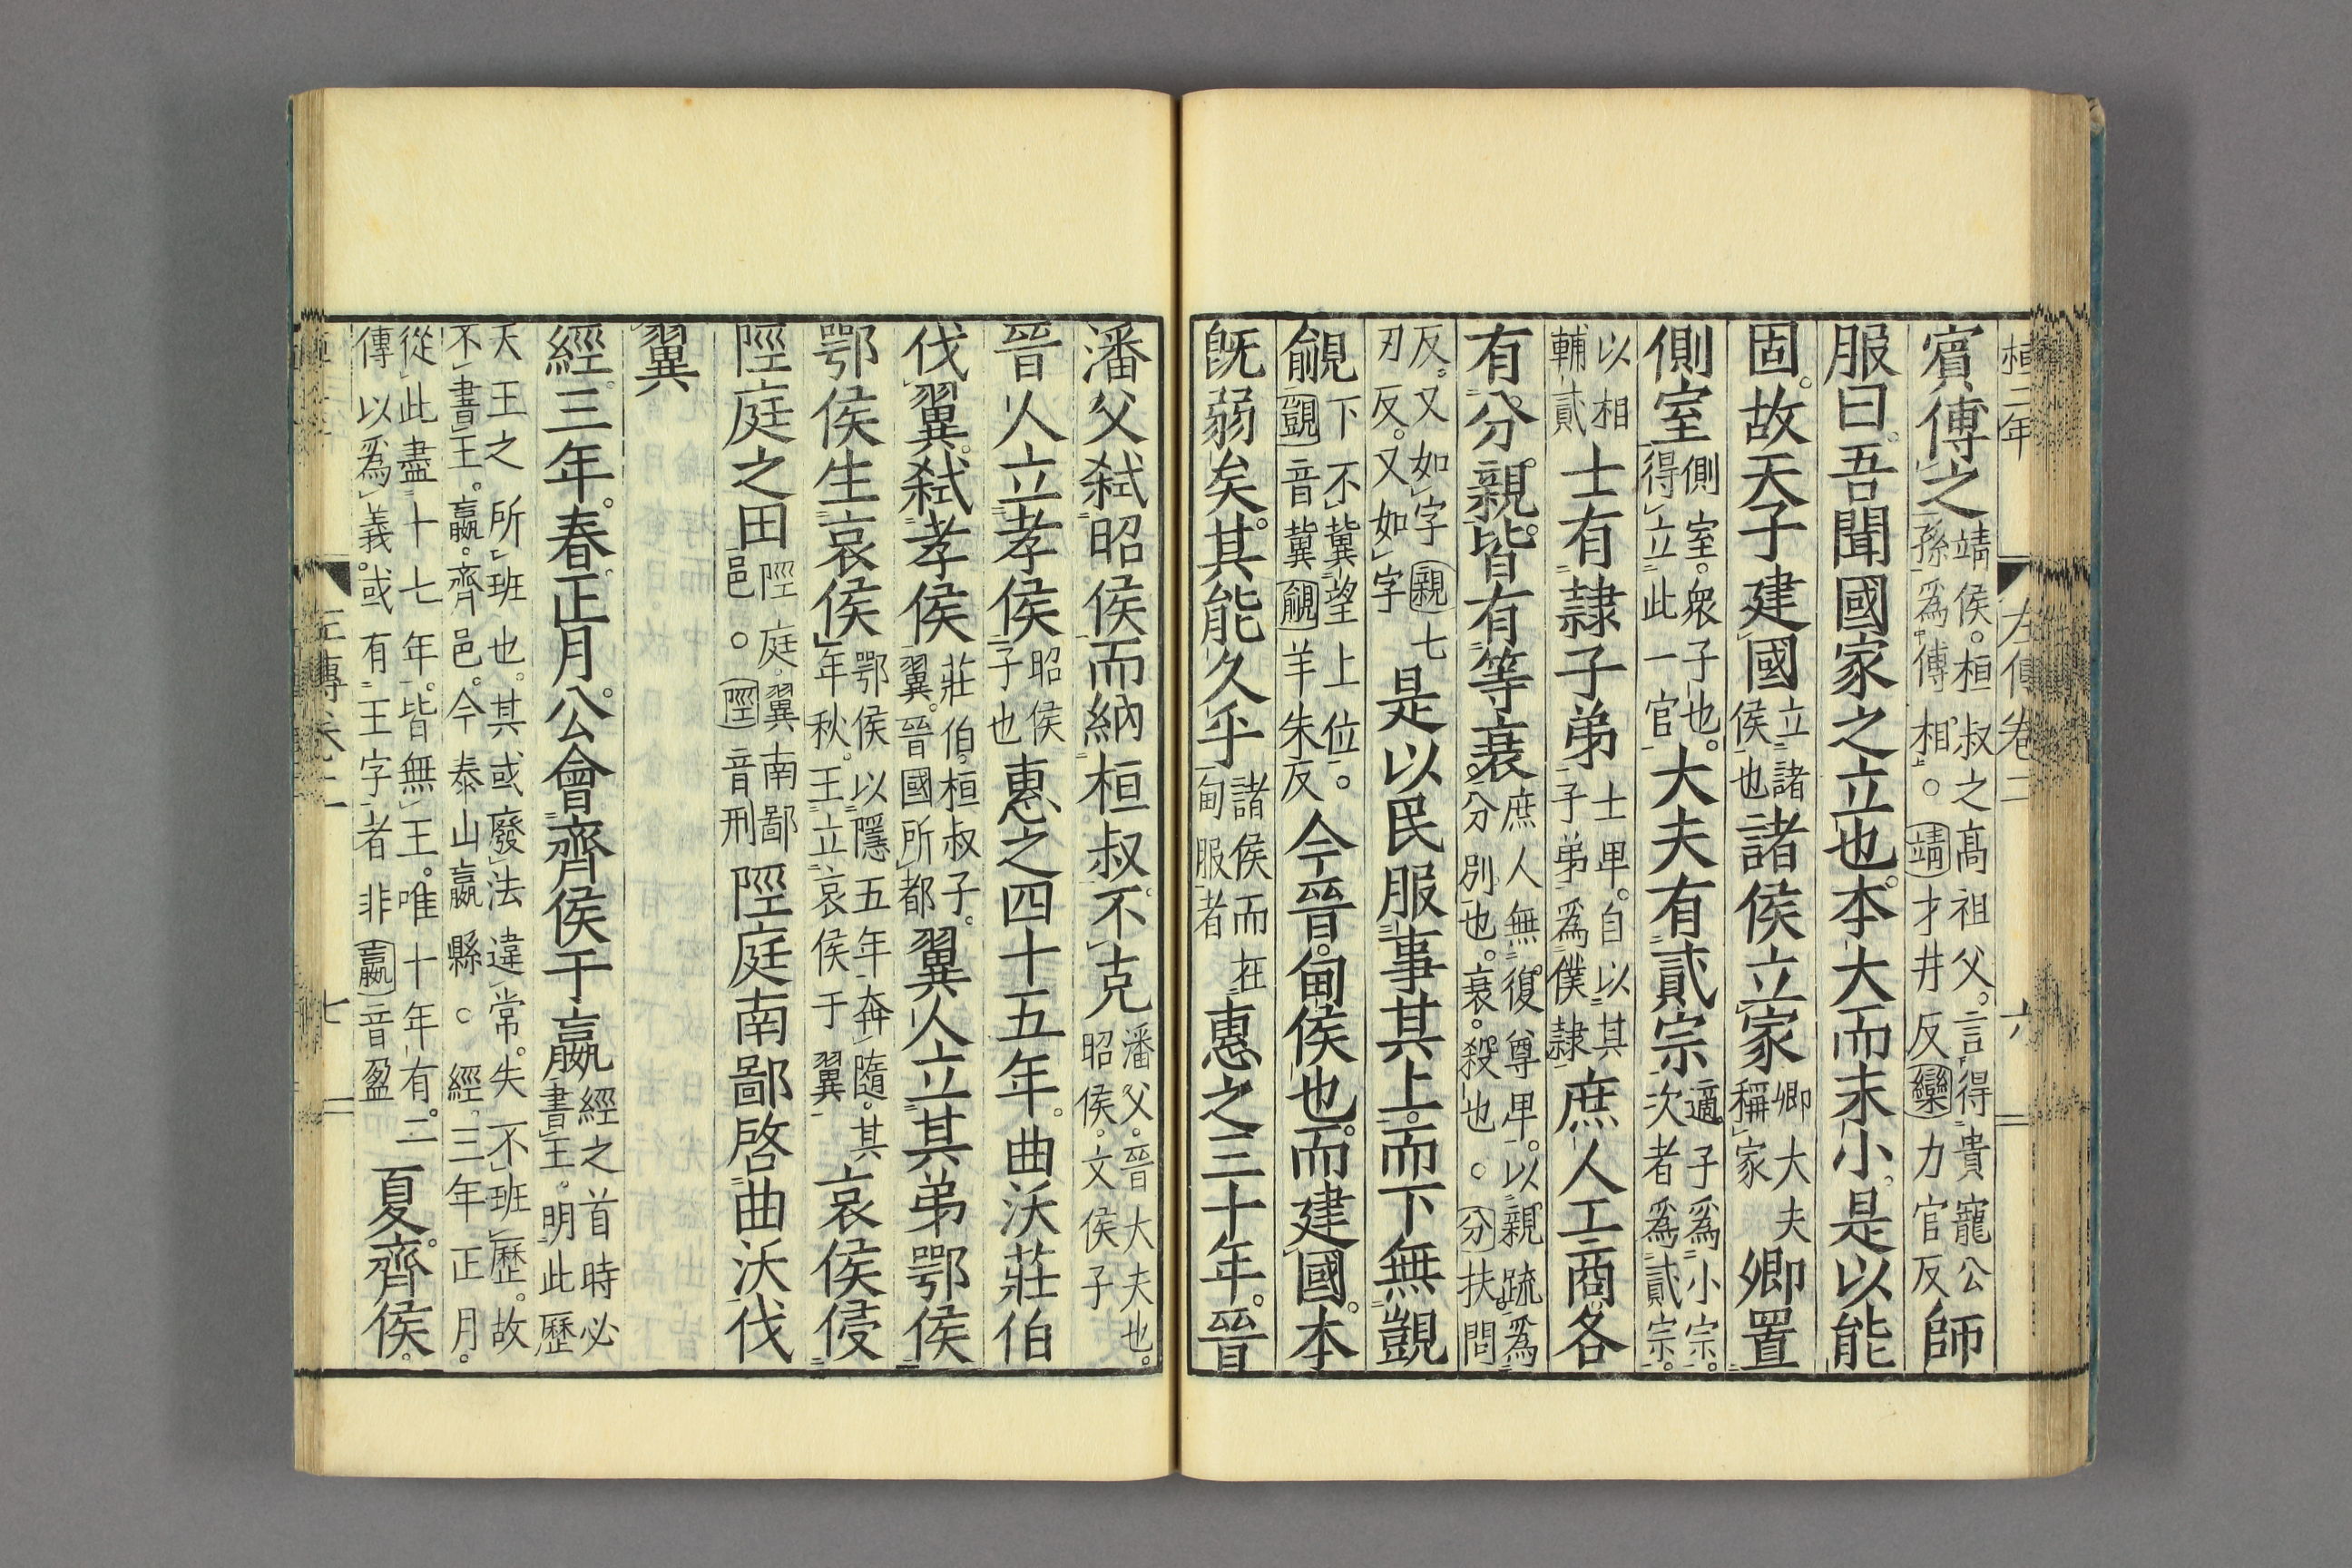 桓二年 左傳卷二 六
賓傅之靖侯。桓叔之髙祖父。言得貴寵公孫爲傅相。。靖才井反欒力官反師
服曰。吾聞國家之立也。本大而末小。是以能
固。故天子建國立諸侯也諸侯立家卿大夫稱家卿置
側室側室。衆子也。得立此一官大夫有貳宗適子爲小宗。次者爲貳宗。
以相輔貳士有隷子弟士卑。自以其子弟爲僕隷庶人工商各
有分。親。皆有等衰。庶人無復尊卑。以親踈爲分別也。衰。殺也。分扶問
反。又如字親七刃反。又如字是以民服事其上。而下無覬
覦下不冀望上位。。覬音冀覦羊朱反今晉。甸侯也。而建國。本
旣弱矣。其能久乎諸侯而在甸服者惠之三十年。晉
潘父弑昭侯而納桓叔。不克潘父。晉大夫也。昭侯。文侯子
晉人立孝侯昭侯子也惠之四十五年。曲沃莊伯
伐翼。弑孝侯莊伯。桓叔子。翼。晉國所都翼人立其弟鄂侯
鄂侯生哀侯鄂侯以隱五年奔隨。其年秋。王立哀侯于翼哀侯侵
陘庭之田陘庭。翼南鄙邑。。陘音刑陘庭南鄙啓曲沃伐
翼
經。三年。春。正月。公會齊侯于嬴經之首時必書王。明此歷
天王之所班也。其或廢法違常。失不班歷。故不書王。嬴。齊邑。今泰山嬴縣。。經三年正月。
從此盡十七年。皆無王。唯十年有。二傳以爲義。或有王字者非嬴音盈夏。齊侯。